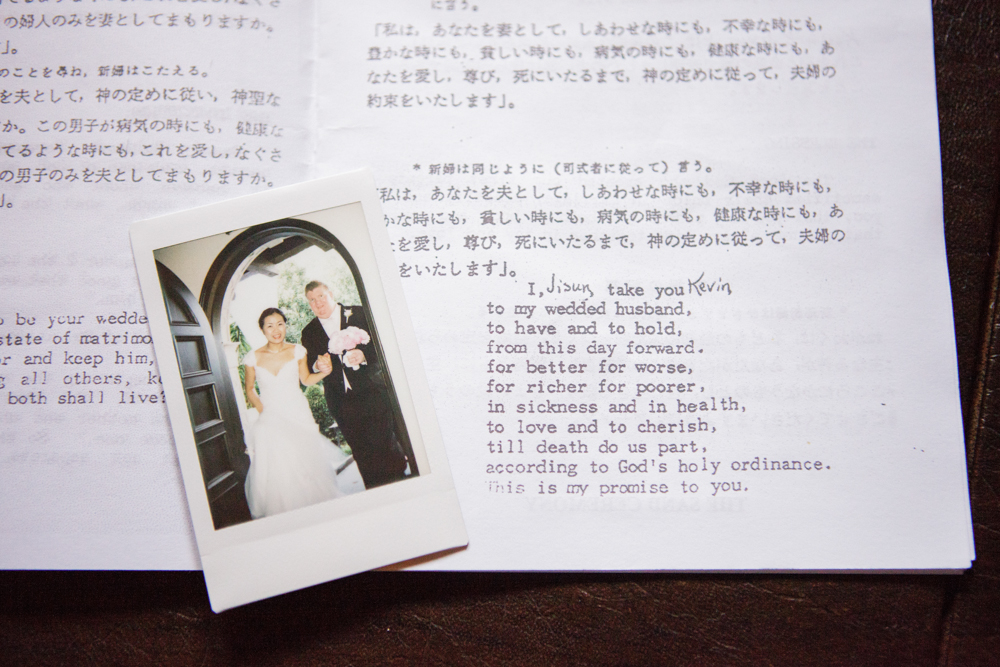 の婦人のみを妻としてまもりますか。
」。
のことを尋ね，新婦はこたえる。
を夫として，神の定めに従い，神聖な
か。この男子が病気の時にも，健康な
てるような時にも，これを愛し，なぐさ
の男子のみを夫としてまもりますか。
」。
o be your wedde
state of matrimo
or and keep him,
g all others, ke
both shall live?
に言う。
「私は，あなたを妻として，しあわせな時にも，不幸な時にも，
豊かな時にも，貧しい時にも，病気の時にも，健康な時にも，あ
なたを愛し，尊び，死にいたるまで，神の定めに従って，夫婦の
約束をいたします」。
* 新婦は同じように（司式者に従って）言う。
「私は，あなたを夫として，しあわせな時にも，不幸な時にも，
かな時にも，貧しい時にも，病気の時にも，健康な時にも，あ
を愛し，尊び，死にいたるまで，神の定めに従って，夫婦の
をいたします」。
I, Jisun, take you Kevin
to my wedded husband,
to have and to hold,
from this day forward.
for better for worse,
for richer for poorer,
in sickness and in health,
to love and to cherish,
till death do us part,
according to God's holy ordinance.
This is my promise to you.
THE SAND CEREMONY